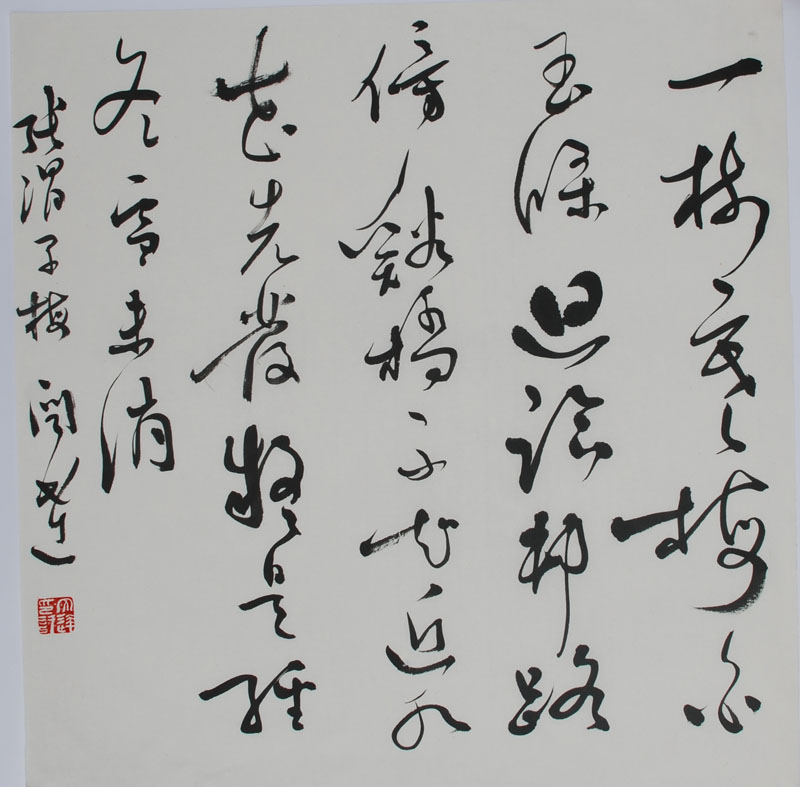 一樹寒梅白
玉條迥臨村路
傍谿橋不知近水
花先發疑是經
冬雪未消
張渭子梅